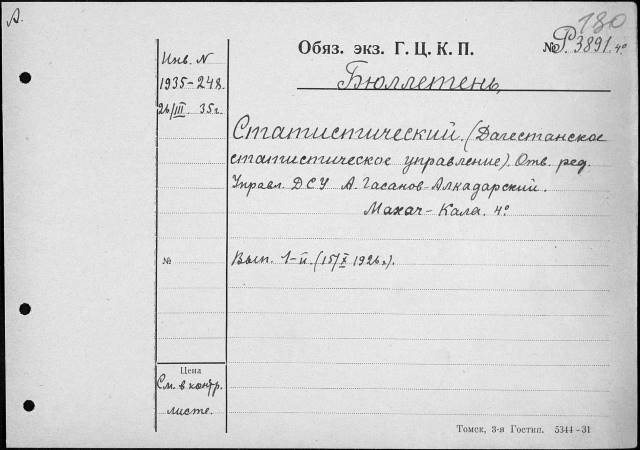 А.
180
Инв. N
1935-248
26/III. 35г.
Обяз. экз. Г. Ц. К. П.
№ Р. 3891. 4°
Бюллетень,
Статистический. (Дагестанское
статистическое управление). Отв. ред.
Управл. ДСУ А. Гасанов-Алкадарский.
Махач-Кала. 4°
№
Вып. 1-й. (15/X 1926г.).
Цена
См. в контр.
листе.
Томск, 3-я Гостип. 5344-31